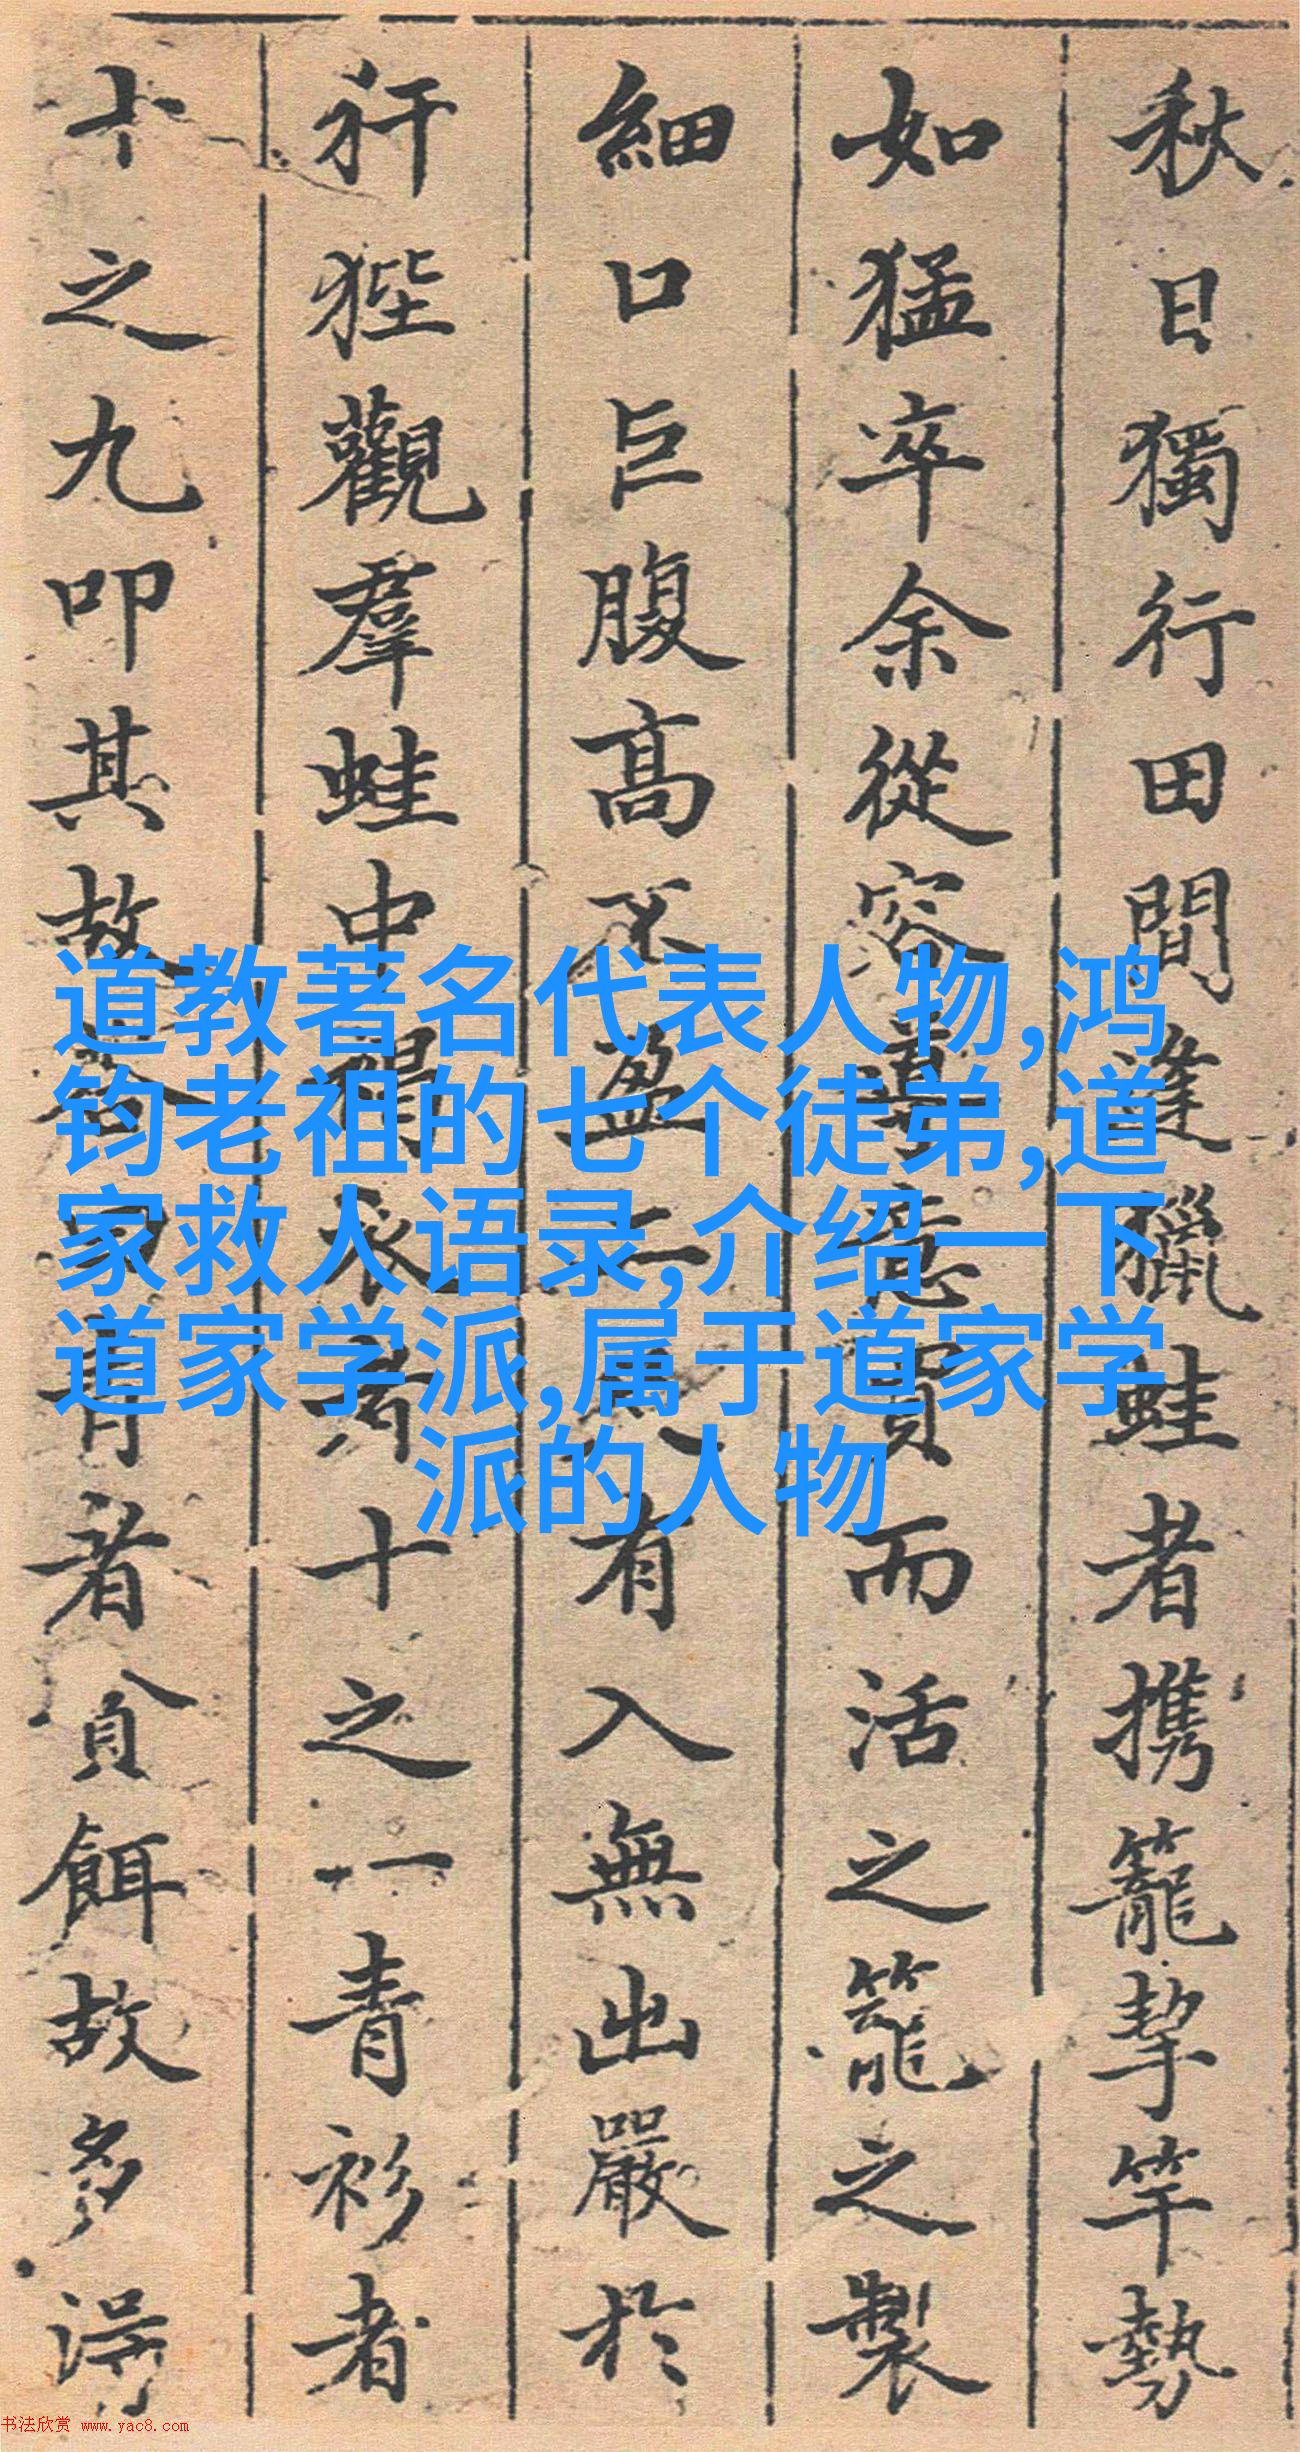 秋日獨行田間逢獵蛙者携籠挈竿勢
如猛卒余從容善意買而活之籠之製
細口巨腹高不盈二尺有入無出嚴於
犴狴觀羣蛙中得衣者十之一青衫者
十之九叩其故答曰青者貪餌故多得
道教著名代表人物,鸿
钧老祖的七个徒弟,道
家救人语录,介绍一下
道家学派,属于道家学
派的人物
书法欣赏 www.yac8.com